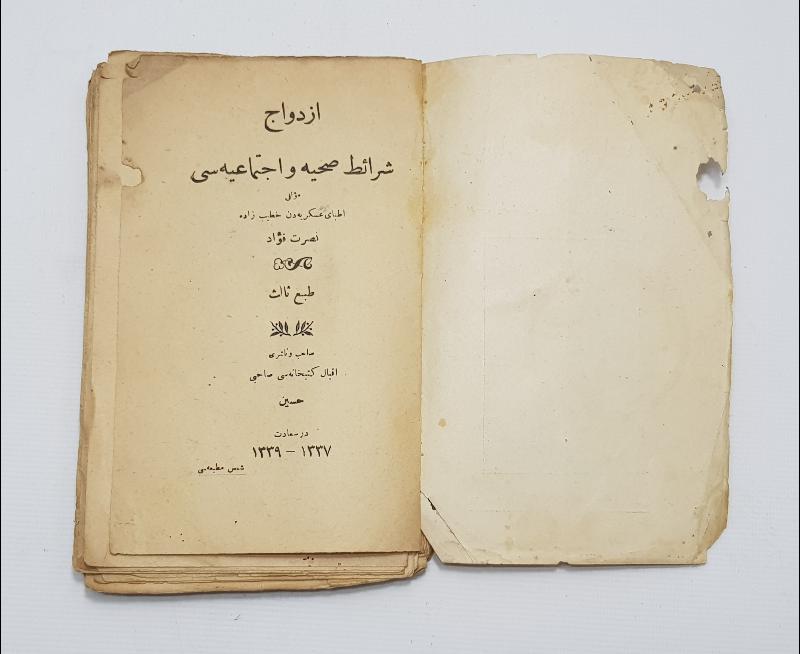 ازدواج
شرائط صحیه و اجتماعیه‌سی
مؤلفی
اطبای عسکریه‌دن خطیب زاده
نصرت فؤاد
طبع ثالث
صاحب و ناشری
اقبال کتبخانه‌سی صاحبی
حسین
در سعادت
۱۳۳۷ – ۱۳۳۹
شمس مطبعه‌سی